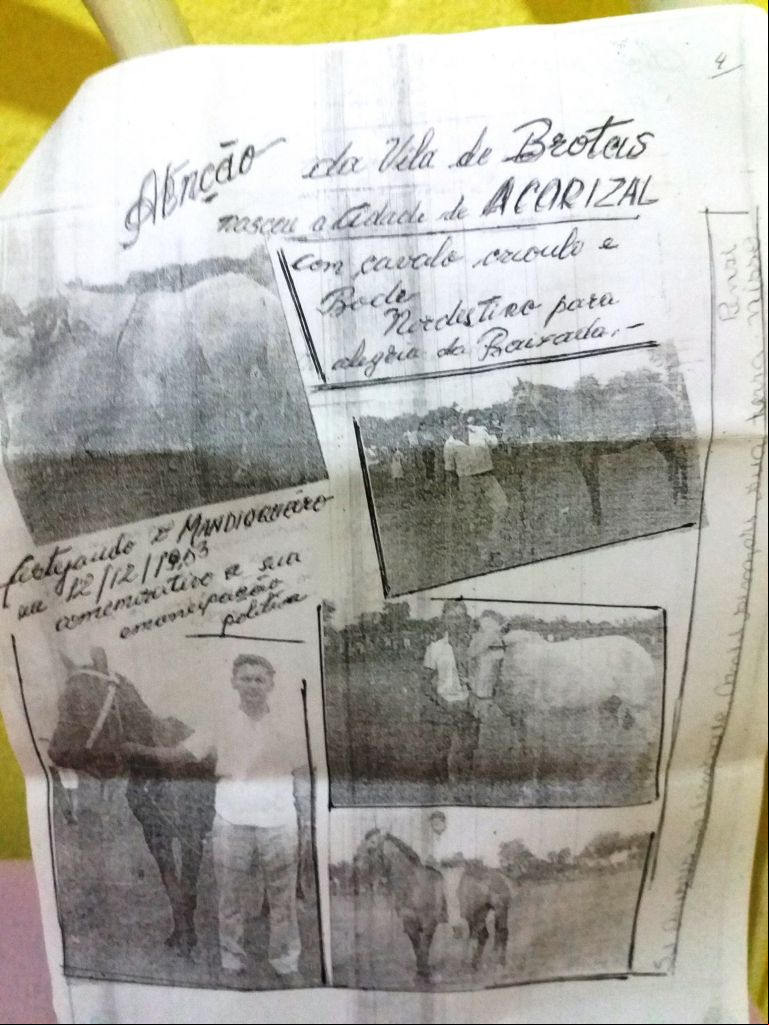 4
Atenção da Vila de Brotas
nasceu a Cidade de ACORIZAL
com cavalo crioulo e
Bode
Nordestino para
alegria da Baixada.-
festejando o MANDIOQUEIRO
em 12/12/1953
comemorativo a sua
emancipação
politica